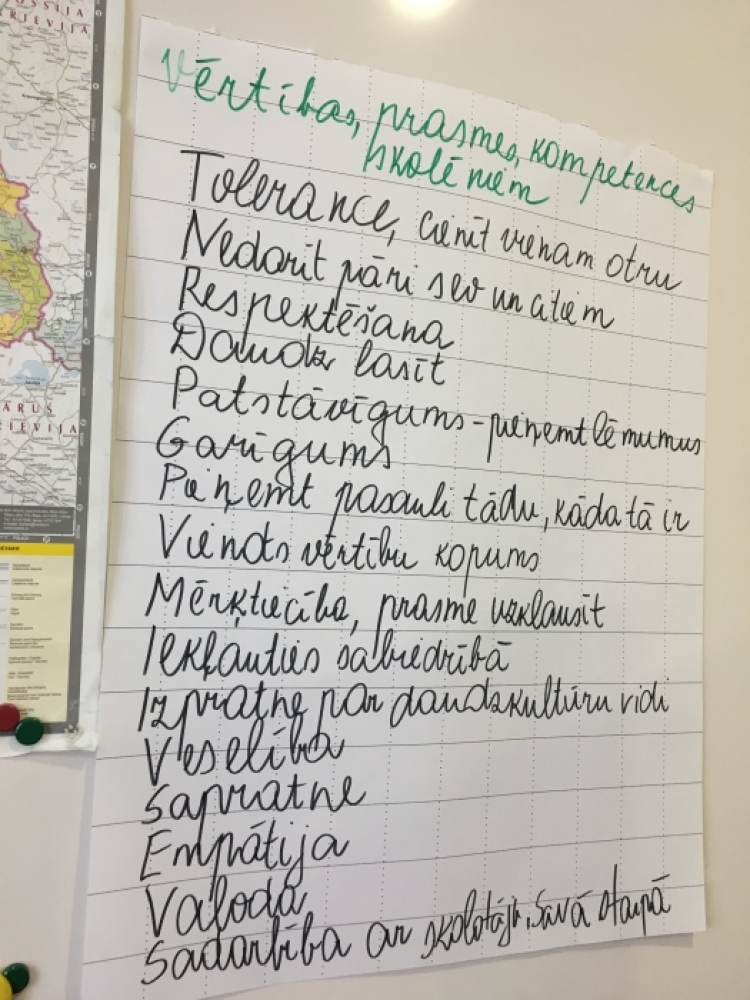 Vērtības, prasmes, kompetences
skolēniem
Tolerance, cienīt vienam otru
Nedarīt pāri sev un citiem
Respektēšana
Daudz lasīt
Patstāvīgums - pieņemt lēmumus
Garīgums
Pieņemt pasauli tādu, kāda tā ir
Vienots vērtību kopums
Mērķtiecība, prasme uzklausīt
Iekļauties sabiedrībā
Izpratne par daudzkultūru vidi
Veselība
Sapratne
Empātija
Valoda
Sadarbība ar skolotāju, savā starpā